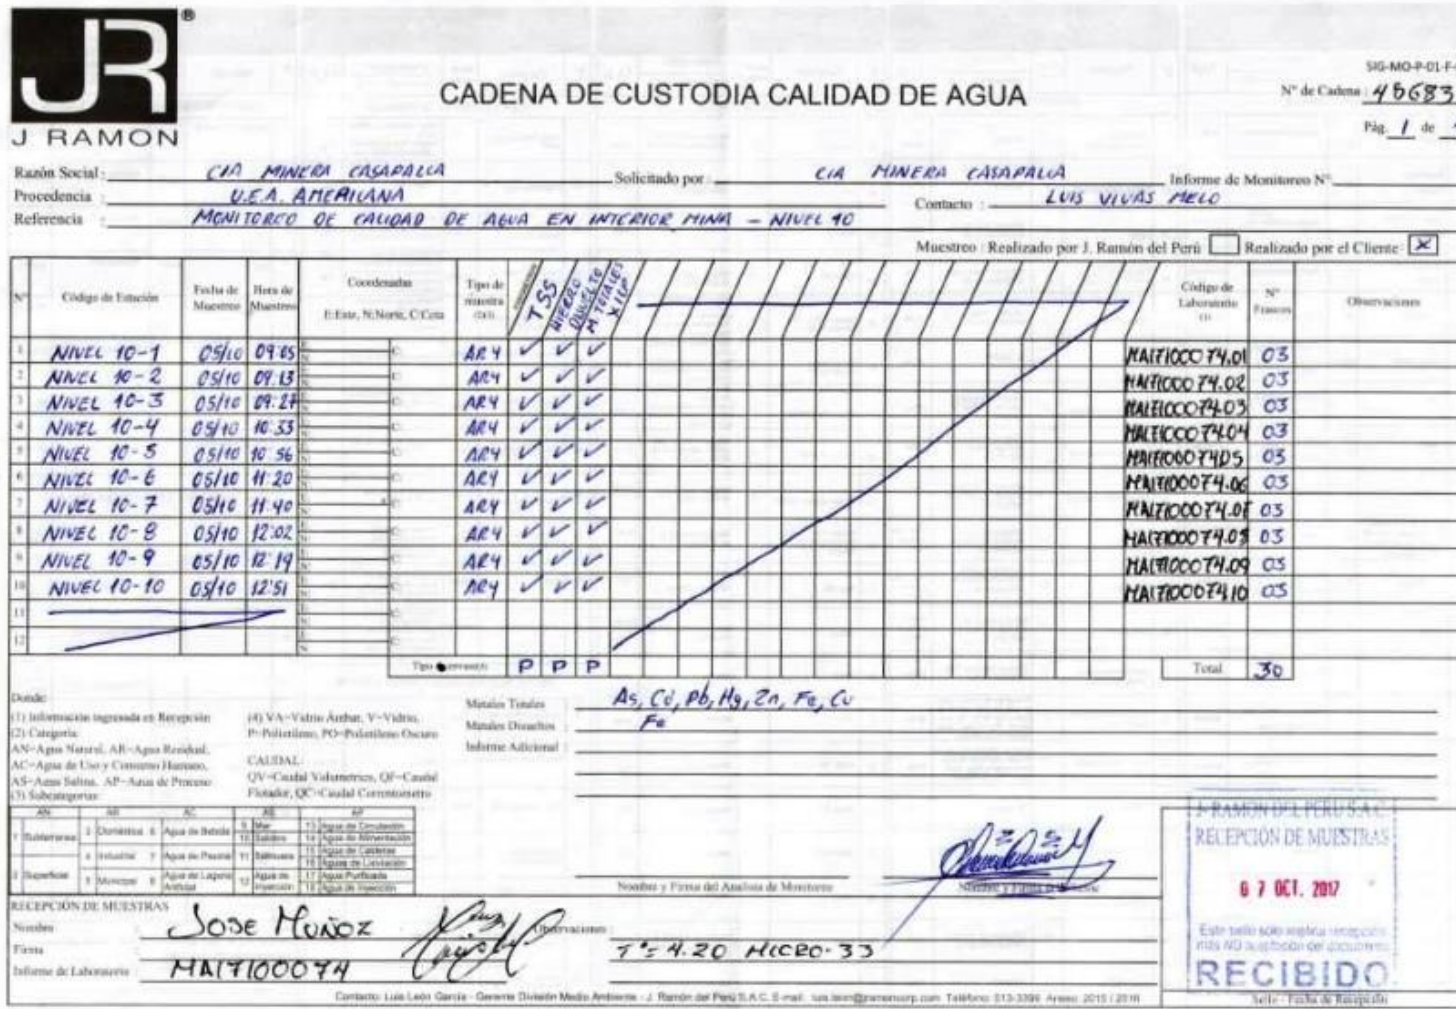 JR ®
J RAMON
CADENA DE CUSTODIA CALIDAD DE AGUA
SIG-MO-P-01-F-
N° de Cadena : 45683
Pág. 1 de
Razón Social : CIA MINERA CASAPALCA Solicitado por : CIA MINERA CASAPALCA Informe de Monitoreo N°
Procedencia : U.E.A. AMERICANA Contacto : LUIS VIVAS MELO
Referencia : MONITOREO DE CALIDAD DE AGUA EN INTERIOR MINA - NIVEL 10
Muestreo : Realizado por J. Ramón del Perú Realizado por el Cliente X
N° Código de Estación Fecha de Muestreo Hora de Muestreo Coordenadas E:Este, N:Norte, C:Cota Tipo de muestra (2)(3) TSS HIERRO DISUELTO M TOTALES X ICP Código de Laboratorio (1) N° Frascos Observaciones
1 NIVEL 10-1 05/10 09:05 AR4 ✓ ✓ ✓ MA17100074.01 03
2 NIVEL 10-2 05/10 09:13 AR4 ✓ ✓ ✓ MA17100074.02 03
3 NIVEL 10-3 05/10 09:27 AR4 ✓ ✓ ✓ MA17100074.03 03
4 NIVEL 10-4 05/10 10:33 AR4 ✓ ✓ ✓ MA17100074.04 03
5 NIVEL 10-5 05/10 10:56 AR4 ✓ ✓ ✓ MA17100074.05 03
6 NIVEL 10-6 05/10 11:20 AR4 ✓ ✓ ✓ MA17100074.06 03
7 NIVEL 10-7 05/10 11:40 AR4 ✓ ✓ ✓ MA17100074.07 03
8 NIVEL 10-8 05/10 12:02 AR4 ✓ ✓ ✓ MA17100074.08 03
9 NIVEL 10-9 05/10 12:19 AR4 ✓ ✓ ✓ MA17100074.09 03
10 NIVEL 10-10 05/10 12:51 AR4 ✓ ✓ ✓ MA17100074.10 03
11
12
Tipo P P P Total 30
Donde:
(1) Información ingresada en Recepción
(2) Categoría:
AN=Agua Natural, AR=Agua Residual,
AC=Agua de Uso y Consumo Humano,
AS=Agua Salina, AP=Agua de Proceso
(3) Subcategorías:
(4) VA=Vidrio Ámbar, V=Vidrio,
P=Polietileno, PO=Polietileno Oscuro
CAUDAL:
QV=Caudal Volumétrico, QF=Caudal
Flotador, QC=Caudal Correntómetro
Metales Totales : As, Cd, Pb, Hg, Zn, Fe, Cu
Metales Disueltos : Fe
Informe Adicional :
AN AR AC AS AP
1 Subterranea 3 Domestica 6 Agua de Bebida 9 Mar 13 Agua de Circulación
10 Salobre 14 Agua de Alimentación
4 Industrial 7 Agua de Piscina 11 Salmuera 15 Agua de Calderas
16 Aguas de Lixiviación
2 Superficial 5 Municipal 8 Agua de Laguna Artificial 12 Agua de Inyección 17 Agua Purificada
18 Agua de Inyección
Nombre y Firma del Analista de Monitoreo
Nombre y Firma
J. RAMON DEL PERU S.A.C.
RECEPCIÓN DE MUESTRAS
07 OCT. 2017
Este sello solo implica recepción
mas NO aceptación del documento
RECIBIDO
Sello - Fecha de Recepción
RECEPCIÓN DE MUESTRAS
Nombre : JOSE MUÑOZ
Observaciones :
Firma
T°= 4.20 MICRO-33
Informe de Laboratorio : MA17100074
Contacto: Luis León García - Gerente División Medio Ambiente - J. Ramón del Perú S.A.C. E-mail: luis.leon@jramoncorp.com Teléfono: 513-3399 Anexo: 2015 / 2016